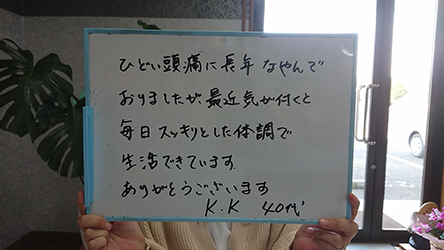 ひどい頭痛に長年なやんで
おりましたが、最近気が付くと
毎日スッキリとした体調で
生活できています。
ありがとうございます
K.K 40代